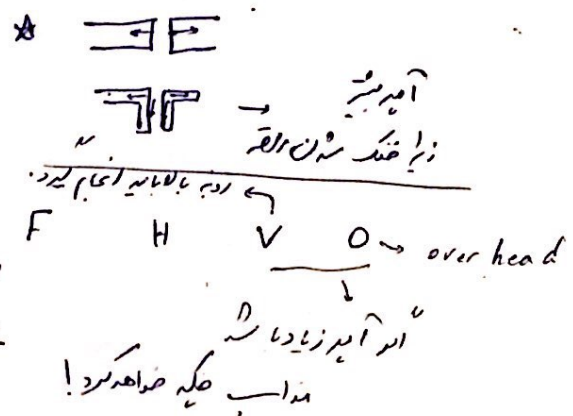 آمپر بیشتر
زیرا خنک شدن
رو به بالا باید انجام گیرد.
F H V O → over head
اگر آمپر زیاد باشد
مذاب چکه خواهد کرد!